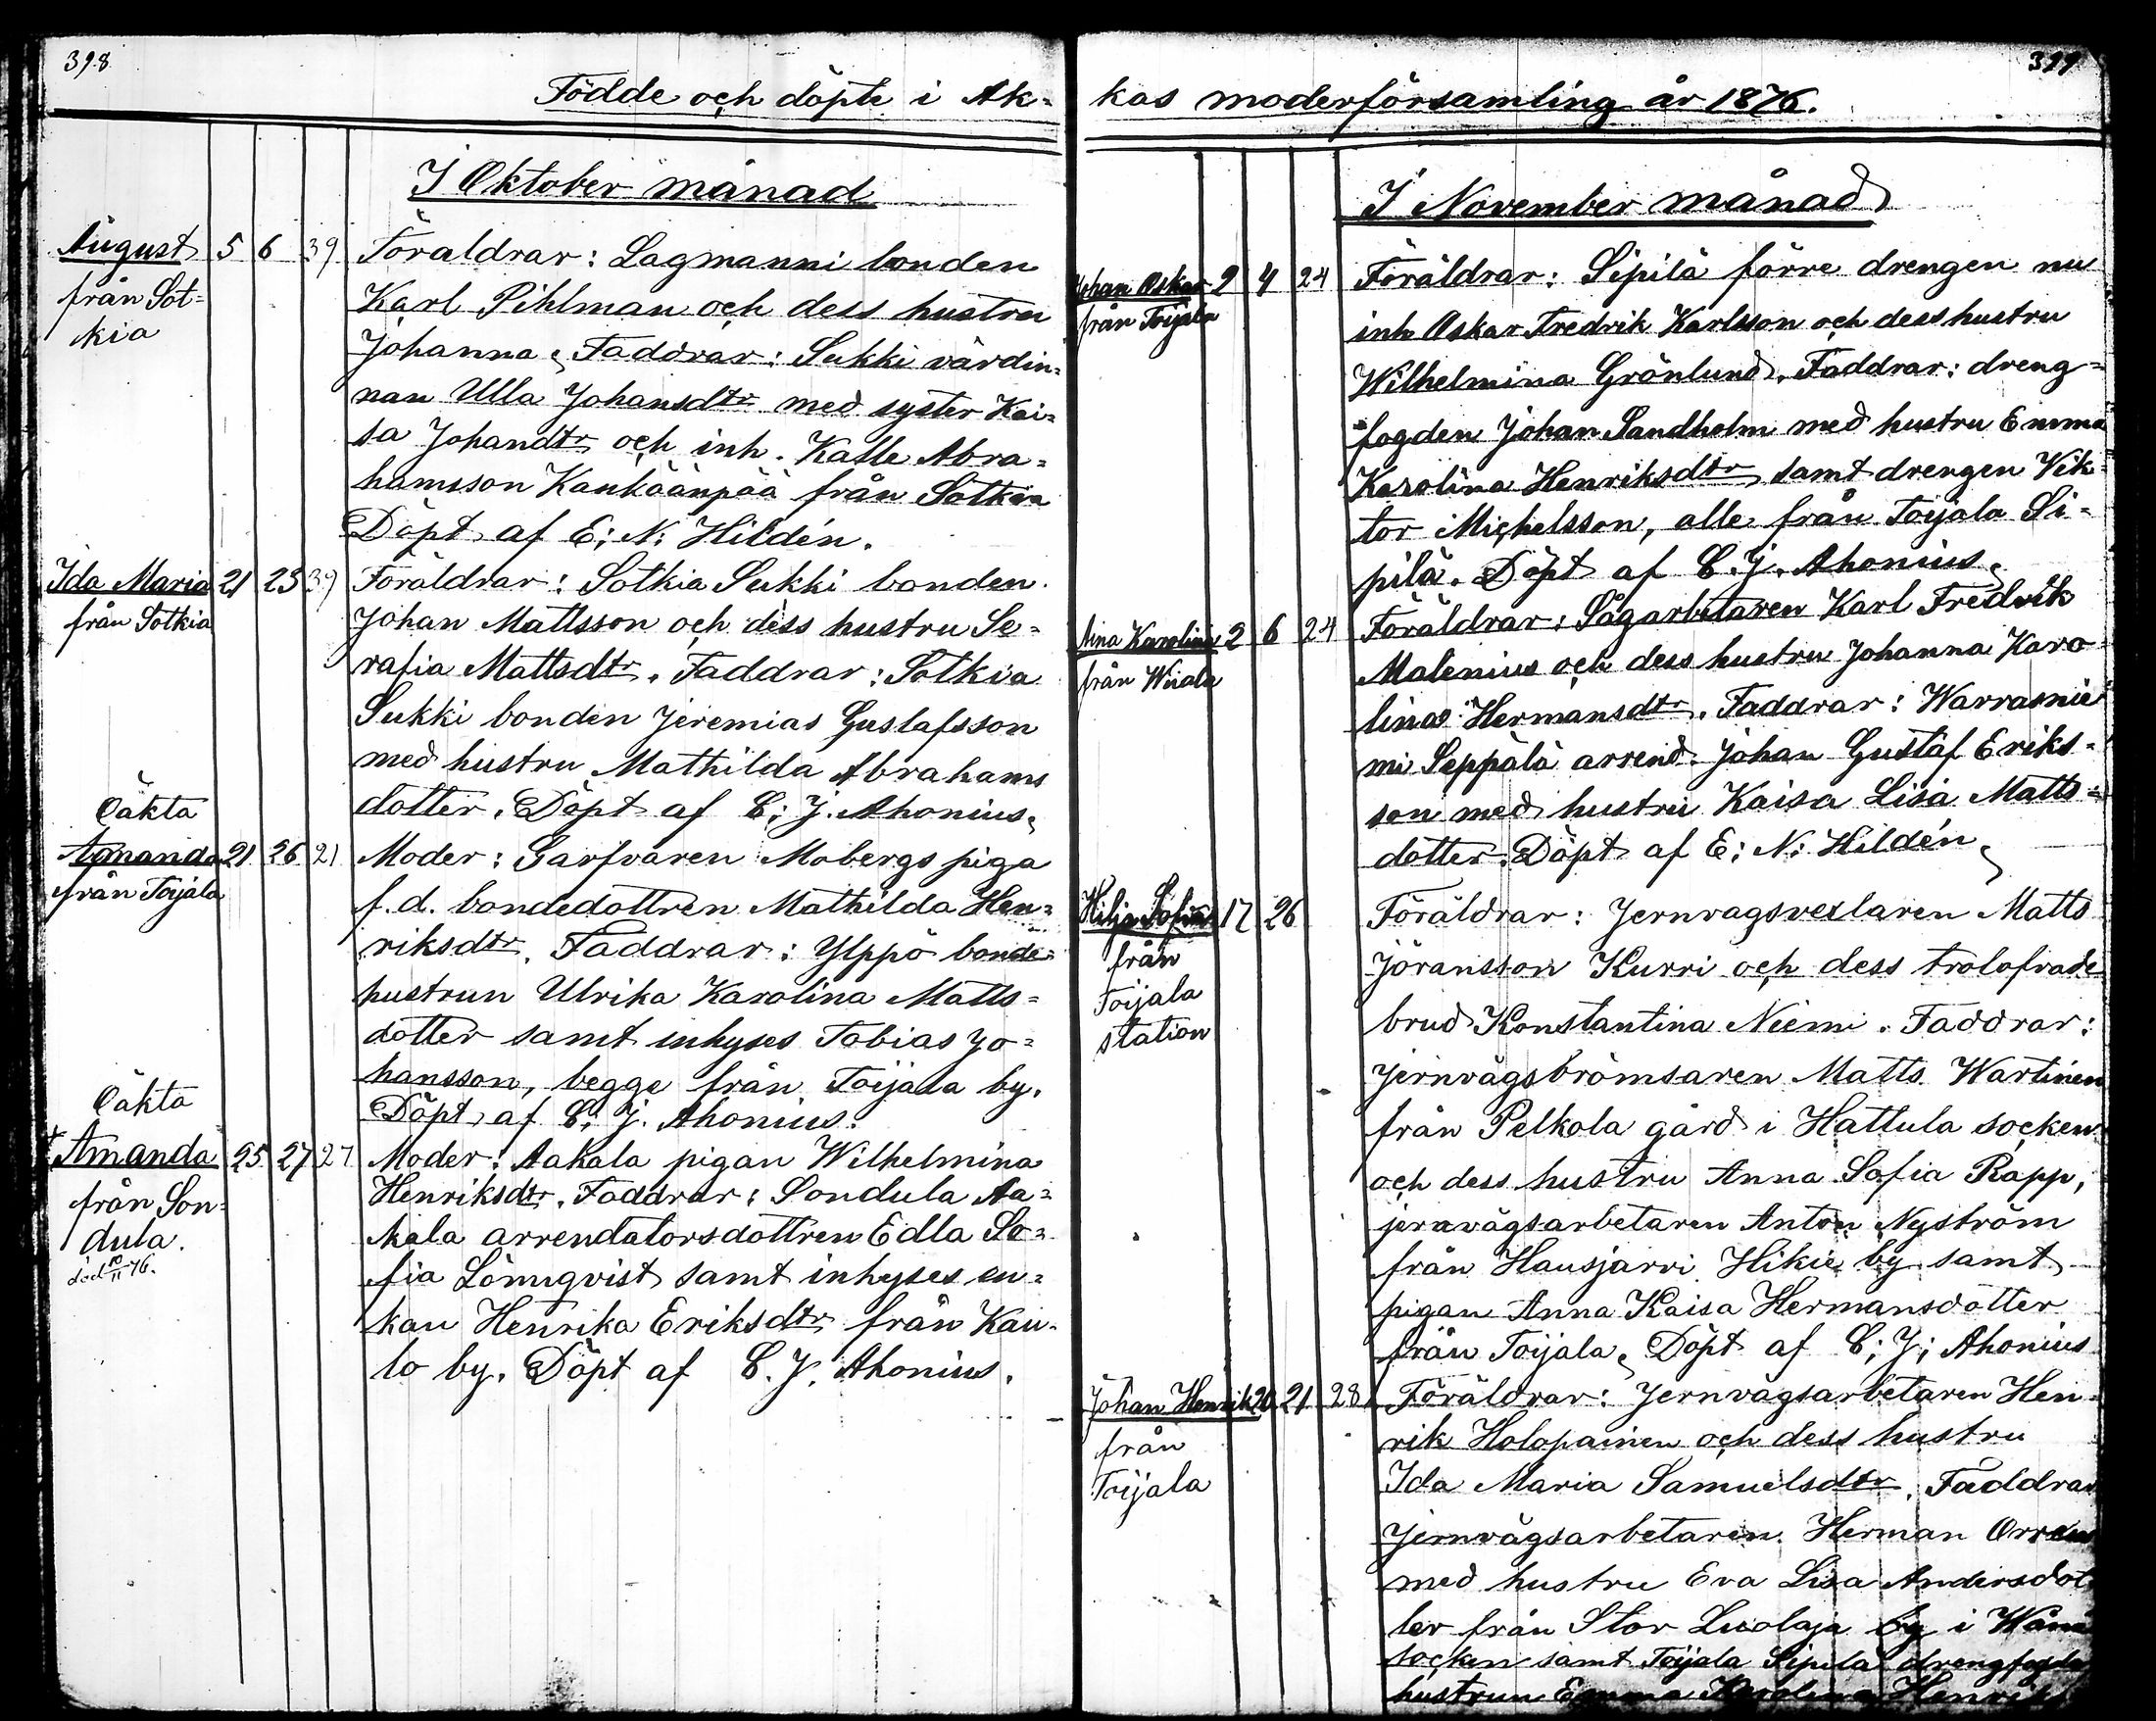 398
Födde och döpte i Ak-
I Oktober månad
August 5 6 39
från Sot-
kia
Föräldrar: Lagmanni bonden
Karl Pihlman och dess hustru
Johanna, Faddrar: Sukki värdin-
nan Ulla Johansdtr med syster Kai-
sa Johandtr och inh. Kalle Abra-
hamsson Kankäänpää från Sotkia
Döpt af E: N: Hildén.
Ida Maria 21 23 39
från Sotkia
Föräldrar: Sotkia Sukki bonden
Johan Mattsson och dess hustru Se-
rafia Mattsdtr. Faddrar: Sotkia
Sukki bonden Jeremias Gustafsson
med hustru Mathilda Abrahams
dotter. Döpt af C: J. Ahonius.
Oäkta
Amanda 21 26 21
från Toijala
Moder: Garfvaren Mobergs piga
f.d. bondedottren Mathilda Hen-
riksdtr. Faddrar: Ylppö bonde-
hustrun Ulrika Karolina Matts-
dotter samt inhyses Tobias Jo-
hansson, begge från Toijala by.
Döpt af C: J. Ahonius.
Oäkta
+ Amanda 25 27 27
från Son-
dula.
död 10/11 76.
Moder: Aakala pigan Wilhelmina
Henriksdtr. Faddrar: Sondula Aa-
kala arrendatorsdottren Edla So-
fia Lönnqvist samt inhyses en-
kan Henrika Eriksdtr från Kau-
lo by. Döpt af C. J. Ahonius.
399
kas moderförsamling år 1876.
I November månad
Johan Oskar 2 4 24
från Toijala
Föräldrar: Sipilä förre drengen nu
inh Oskar Fredrik Karlsson och dess hustru
Wilhelmina Grönlund. Faddrar: dreng-
fogden Johan Sandholm med hustru Emma
Karolina Henriksdtr samt drengen Vik-
tor Michelsson, alle från Toijala Si-
pilä. Döpt af C. J. Ahonius.
Aina Karolina 2 6 24
från Wiiala
Föräldrar: Sågarbetaren Karl Fredrik
Malenius och dess hustru Johanna Karo-
lina Hermansdtr. Faddrar: Warrasnie
mi Seppälä arrend. Johan Gustaf Eriks-
son med hustru Kaisa Lisa Matts-
dotter. Döpt af E: N: Hildén.
Hilja Sofia 17 26
från
Toijala
station
Föräldrar: Jernvagsvexlaren Matts
Jöransson Kurri och dess trolofvade
brud Konstantina Niemi. Faddrar:
Jernvägsbrömsaren Matts Wartinen
från Pelkola gård i Hattula socken
och dess hustru Anna Sofia Rapp,
jernvägsarbetaren Anton Nyström
från Hausjarvi Hikie by samt
pigan Anna Kaisa Hermansdotter
från Toijala. Döpt af C: J: Ahonius
Johan Henrik 20 21 28
från
Toijala
Föräldrar: Jernvagsarbetaren Hen-
rik Holopainen och dess hustru
Ida Maria Samuelsdtr. Faddrar
Jernvägsarbetaren Herman Orren
med hustru Eva Lisa Andersdot
ter från Stor Luolaja by i Wånå
socken samt Toijala Sipilä drengfogde
hustrun Emma Karolina Henriks